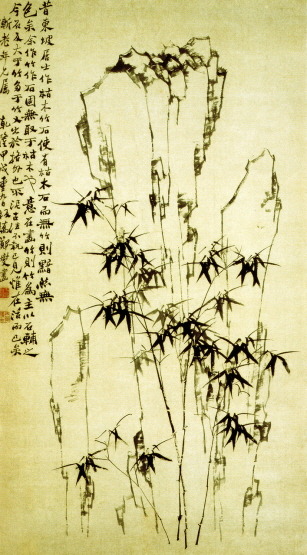 昔東坡居士作枯木竹石使有枯木石而無竹則黯然無
色矣余作竹作石固無取于枯木也意在畫竹則竹為主以石輔之
今石反大于竹多于竹又出於格外也不泥古法不執己見惟在活而已矣